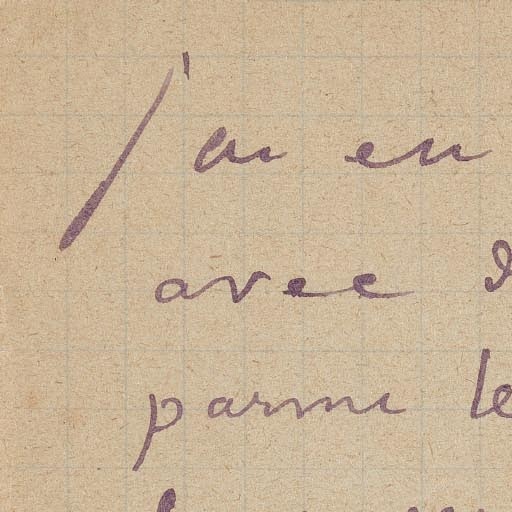 j'ai eu
avec
parmi le